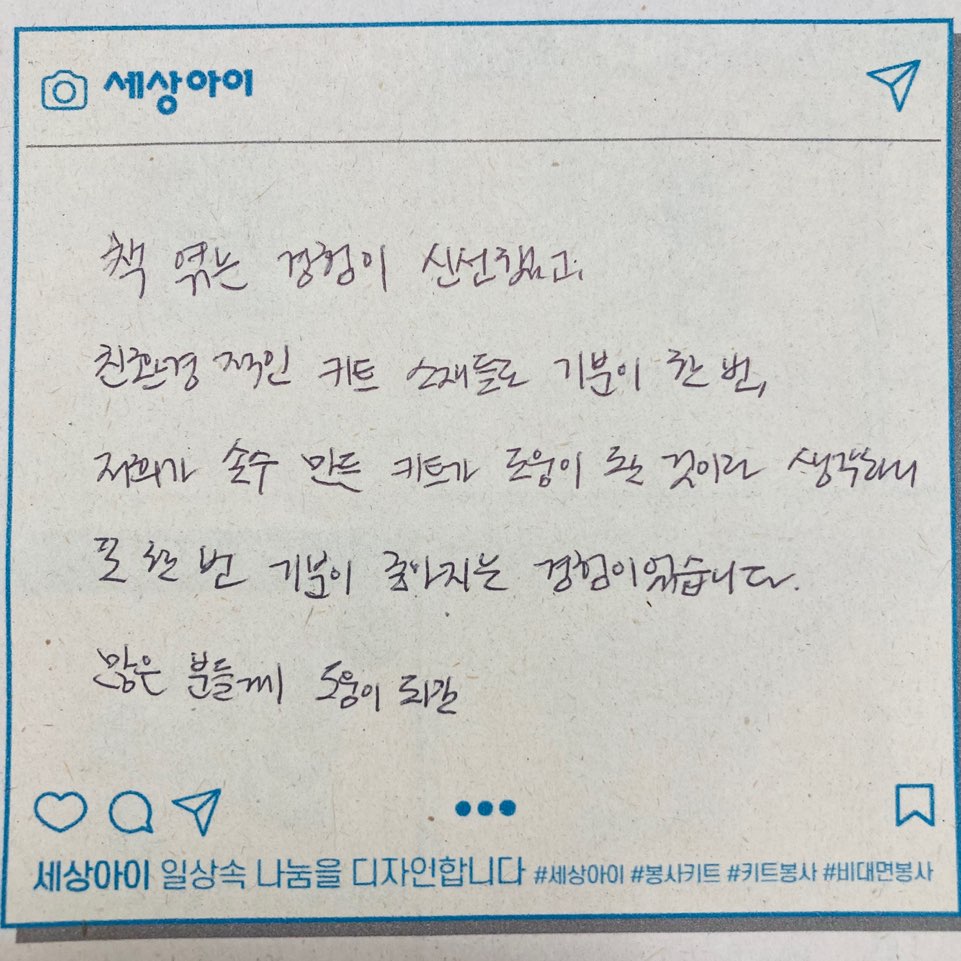 세상아이
책 엮는 경험이 신선했고,
친환경 적인 키트 소재들로 기분이 한 번,
저희가 손수 만든 키트가 도움이 될 것이라 생각하니
또 한 번 기분이 좋아지는 경험이었습니다.
많은 분들께 도움이 되길
세상아이 일상속 나눔을 디자인합니다 #세상아이 #봉사키트 #키트봉사 #비대면봉사